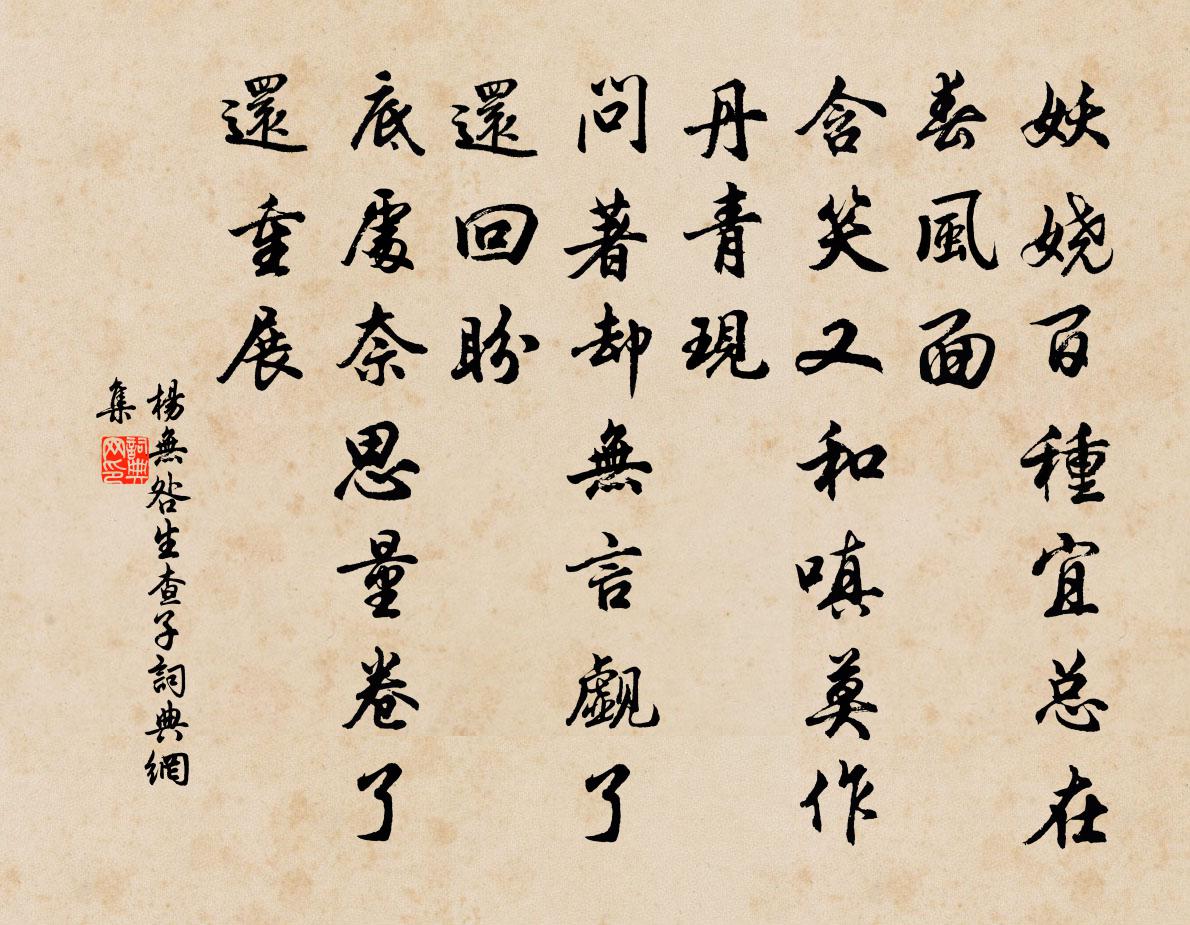 妖嬈百種宜总在
春風面
含笑又和嗔莫作
丹青現
問著却無言覷了
還回盼
底處奈思量卷了
還重展
楊無咎生查子詞典網
集
詞典
网印